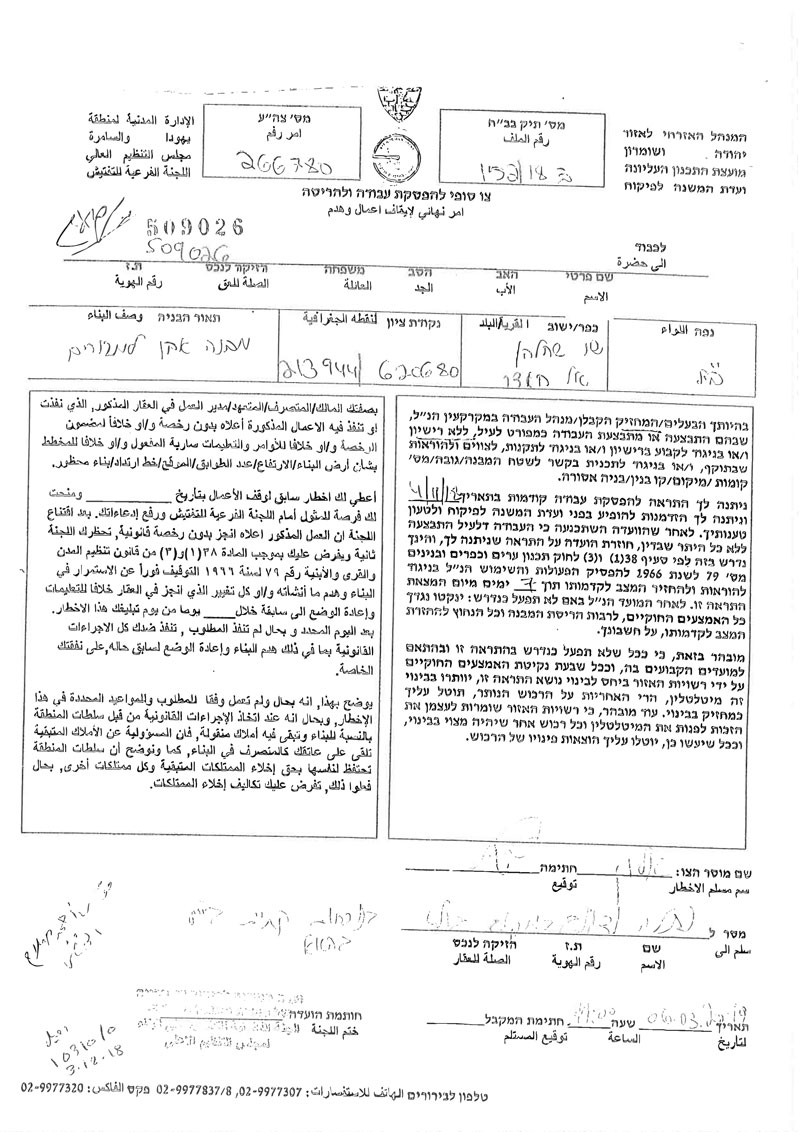 המנהל האזרחי לאזור
יהודה ושומרון
מועצת התכנון העליונה
ועדת המשנה לפיקוח
מס' תיק בב"ח
رقم الملف
ב 18/
מס' צה"ע
امر رقم
266780
الإدارة المدنية لمنطقة
يهودا والسامرة
مجلس التنظيم العالي
اللجنة الفرعية للتفتيش
צו סופי להפסקת עבודה ולהריסה
امر نهائي لإيقاف اعمال وهدم
509026
509026
לכבוד
الى حضرة
שם פרטי האב הסב משפחה הזיקה לנכס ת.ז
الاسم الأب الجد العائلة الصلة للحق رقم الهوية
נפה اللواء
כפר/ישוב القرية/البلد
נקודת ציון النقطة الجغرافية
תאור הבניה وصف البناء
213944 626680
מבנה אבן למגורים
בהיותך הבעלים/המחזיק הקבלן/מנהל העבודה במקרקעין הנ"ל,
שבהם התבצעה או מתבצעת העבודה כמפורט לעיל, ללא רישיון
ו/או בניגוד לקבוע ברישיון ו/או בניגוד לתקנות, לצווים ולהוראות
שבתוקף, ו/או בניגוד לתכנית בקשר לשטח המבנה/גובה/מס'
קומות /מיקום/קו בנין/בניה אסורה.
ניתנה לך התראה להפסקת עבודה קודמות בתאריך
וניתנה לך הזדמנות להופיע בפני ועדת המשנה לפיקוח ולטעון
טענותיך. לאחר שהוועדה השתכנעה כי העבודה דלעיל התבצעה
ללא כל היתר שבדין, חוזרת הועדה על התראה שניתנה לך, והינך
נדרש בזה לפי סעיף 38(1) ו(3) לחוק תכנון ערים וכפרים ובנינים
מס' 79 לשנת 1966 להפסיק הפעולות והשימוש הנ"ל בניגוד
להוראות ולהחזיר המצב לקדמותו תוך 7 ימים מיום המצאת
התראה זו. לאחר המועד הנ"ל באם לא תפעל כנדרש: ינקטו נגדך
כל האמצעים החוקיים, לרבות הריסת המבנה וכל הנחוץ להחזרת
המצב לקדמותו, על חשבונך.
מובהר בזאת, כי ככל שלא תפעל כנדרש בהתראה זו ובהתאם
למועדים הקבועים בה, וככל שבעת נקיטת האמצעים החוקיים
על ידי רשויות האזור ביחס לבינוי נושא התראה זו, יוותרו בבינוי
זה מיטלטלין, הרי האחריות על הרכוש הנותר, תוטל עליך
כמחזיק בבינוי. עוד מובהר, כי רשויות האזור שומרות לעצמן את
הזכות לפנות את המיטלטלין וכל רכוש אחר שיהיה מצוי בבינוי,
וככל שיעשו כן, יוטלו עליך הוצאות פינויו של הרכוש.
بصفتك المالك/المتصرف/المتعهد/مدير العمل في العقار المذكور, الذي نفذت
او تنفذ فيه الاعمال المذكورة أعلاه بدون رخصة و/او خلافا لمضمون
الرخصة و/او خلافا للأوامر والتعليمات سارية المفعول و/او خلافا للمخطط
بشان أرض البناء/الارتفاع/عدد الطوابق/الموقع/خط ارتداد/بناء محظور.
أعطي لك اخطار سابق لوقف الأعمال بتاريخ ومنحت
لك فرصة للمثول أمام اللجنة الفرعية للتفتيش ورفع إدعاءاتك. بعد اقتناع
اللجنة ان العمل المذكور اعلاه انجز بدون رخصة قانونية, تحظرك اللجنة
ثانية ويفرض عليك بموجب المادة ٣٨(١)و(٣) من قانون تنظيم المدن
والقرى والأبنية رقم ٧٩ لسنة ١٩٦٦ التوقيف فوراً عن الاستمرار في
البناء وهدم ما أنشأته و/او كل تغيير الذي انجز في العقار خلافا للتعليمات
وإعادة الوضع الى سابقة خلال يوما من يوم تبليغك هذا الاخطار.
بعد اليوم المحدد و بحال لم تنفذ المطلوب , تنفذ ضدك كل الاجراءات
القانونية بما في ذلك هدم البناء وإعادة الوضع لسابق حاله, على نفقتك
الخاصة.
يوضح بهذا, انه بحال ولم تعمل وفقا للمطلوب والمواعيد المحددة في هذا
الإخطار, وبحال انه عند اتخاذ الإجراءات القانونية من قبل سلطات المنطقة
بالنسبة للبناء وتبقى فيه أملاك منقولة, فان المسؤولية عن الأملاك المتبقية
تلقى على عاتقك كالمتصرف في البناء, كما ونوضح أن سلطات المنطقة
تحتفظ لنفسها بحق إخلاء الممتلكات المتبقية وكل ممتلكات أخرى, بحال
فعلوا ذلك, تفرض عليك تكاليف إخلاء الممتلكات.
שם מוסר הצו: חתימה
اسم مسلم الاخطار توقيع
מסר ל
سلم الى
שם ת.ז הזיקה לנכס
الاسم رقم الهوية الصلة للعقار
תאריך שעה חתימת המקבל
لتاريخ الساعة توقيع المستلم
חותמת הועדה
ختم اللجنة
3.12.18
טלפון לבירורים الهاتف للاستفسارات: 02-9977307, 02-9977837/8 פקס الفاكس: 02-9977320